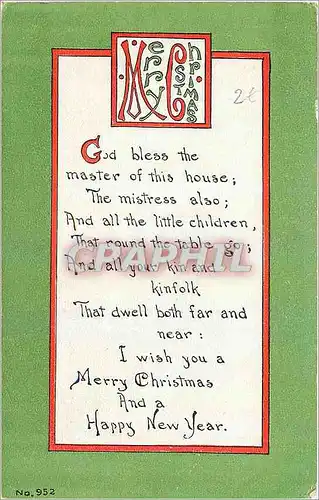 Merry Christmas
2€
God bless the
master of this house;
The mistress also;
And all the little children,
That round the table go;
And all your kin and
kinfolk
That dwell both far and
near:
I wish you a
Merry Christmas
And a
Happy New Year.
No. 952
CRAPHIL